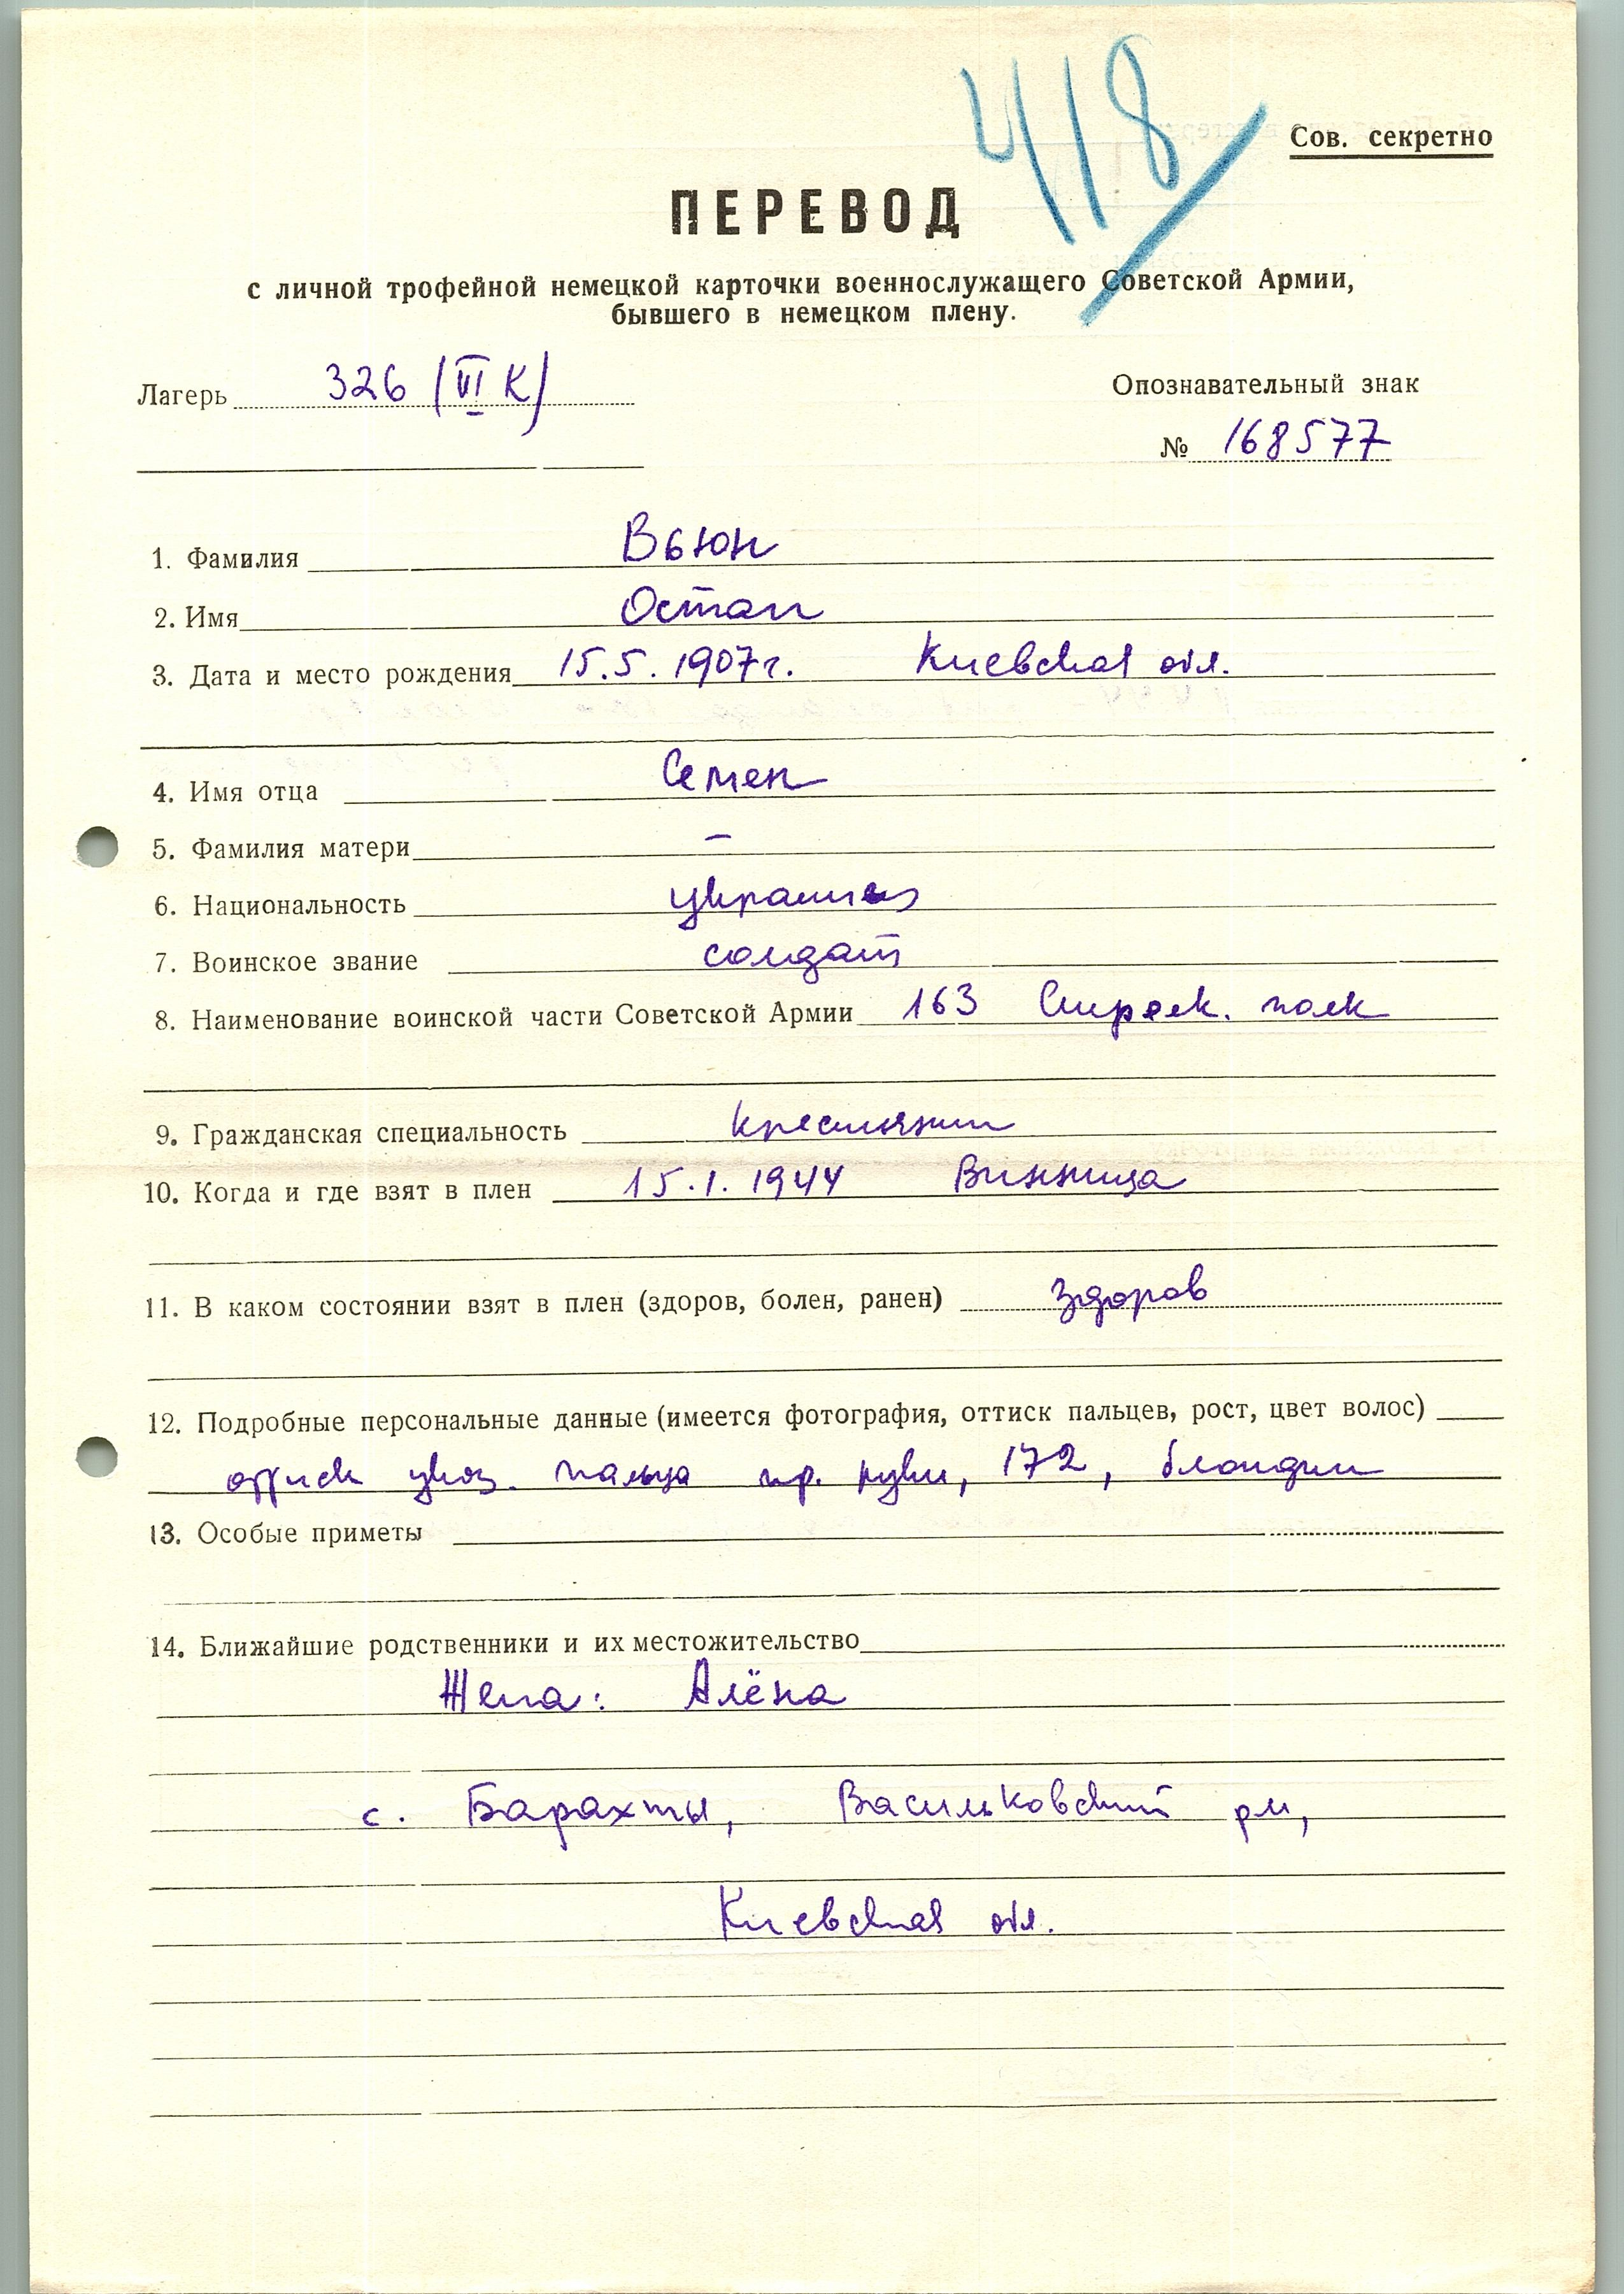 418
Сов. секретно
ПЕРЕВОД
с личной трофейной немецкой карточки военнослужащего Советской Армии,
бывшего в немецком плену.
Лагерь 326 (VI К)
Опознавательный знак
№ 168577
1. Фамилия Вьюн
2. Имя Остап
3. Дата и место рождения 15.5.1907г. Киевская обл.
4. Имя отца Семен
5. Фамилия матери –
6. Национальность украинец
7. Воинское звание солдат
8. Наименование воинской части Советской Армии 163 Стрелк. полк
9. Гражданская специальность крестьянин
10. Когда и где взят в плен 15.1.1944 Винница
11. В каком состоянии взят в плен (здоров, болен, ранен) здоров
12. Подробные персональные данные (имеется фотография, оттиск пальцев, рост, цвет волос)
оттиск указ. пальца пр. руки, 172, блондин
13. Особые приметы
14. Ближайшие родственники и их местожительство
Жена: Алёна
с. Барахты, Васильковский р-н,
Киевская обл.